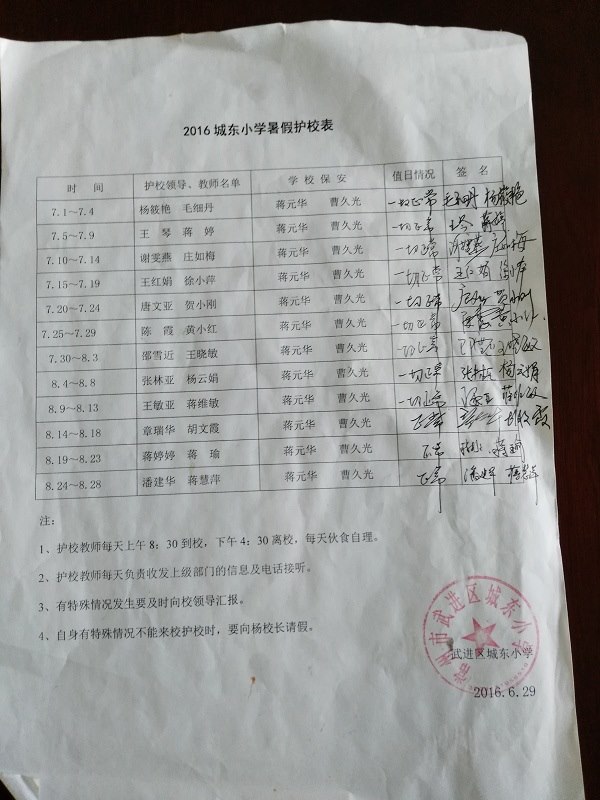 2016 城东小学暑假护校表
时 间 护校领导、教师名单 学 校 保 安 值日情况 签 名
7.1～7.4 杨筱艳 毛细丹 蒋元华 曹久光 一切正常 毛细丹 杨筱艳
7.5～7.9 王 琴 蒋 婷 蒋元华 曹久光 一切正常 王琴 蒋婷
7.10～7.14 谢雯燕 庄如梅 蒋元华 曹久光 一切正常
7.15～7.19 王红娟 徐小萍 蒋元华 曹久光 一切正常 王红娟
7.20～7.24 唐文亚 贺小刚 蒋元华 曹久光 一切正常
7.25～7.29 陈 霞 黄小红 蒋元华 曹久光 一切正常
7.30～8.3 邵雪近 王晓敏 蒋元华 曹久光 一切正常
8.4～8.8 张林亚 杨云娟 蒋元华 曹久光 一切正常 张林亚 杨云娟
8.9～8.13 王敏亚 蒋维敏 蒋元华 曹久光 一切正常
8.14～8.18 章瑞华 胡文霞 蒋元华 曹久光 正常
8.19～8.23 蒋婷婷 蒋 瑜 蒋元华 曹久光 正常 蒋瑜
8.24～8.28 潘建华 蒋慧萍 蒋元华 曹久光 正常
注：
1、护校教师每天上午 8：30 到校，下午 4：30 离校，每天伙食自理。
2、护校教师每天负责收发上级部门的信息及电话接听。
3、有特殊情况发生要及时向校领导汇报。
4、自身有特殊情况不能来校护校时，要向杨校长请假。
常州市武进区城东小学
武进区城东小学
2016.6.29